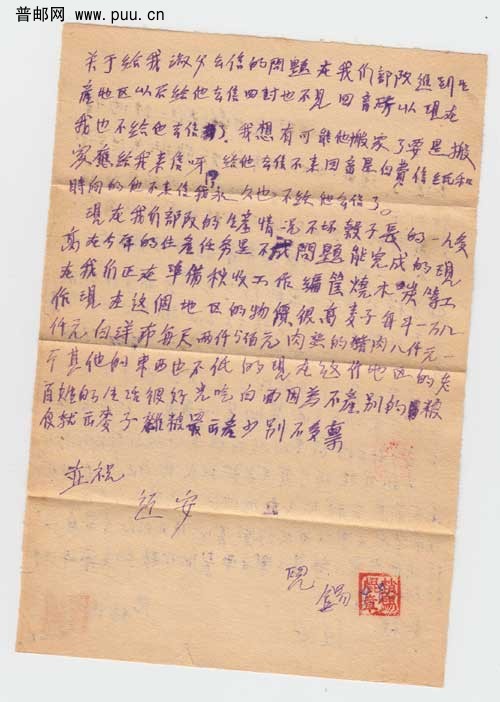 普邮网
www.puu.cn
关于给我 去信的問題在我们部队進到生
產地区以后給他去信四封也不見回音所以現在
我也不給他去信了。我想有可能他搬家了要是搬
家應給我来信呀？給他去信不来回音是白費信纸和
時间的他不来信我永久也不給他去信了。
現在我们部队的生產情况不坏穀子長的一人多
高在今年的生產任务是不成問題能完成的現
在我们正在準備秋收工作編筐燒木炭等工
作現在这個地区的物價很高麦子每斗一万八
仟元白洋布每尺两仟5佰元肉類的猪肉八仟元一
斤其他的東西也不低的現在这个地区的老
百姓的生活很好光吃白面因為不產别的粮
食就 麦子雜粮最 少别不多稟
並祝
近安
兒 錫